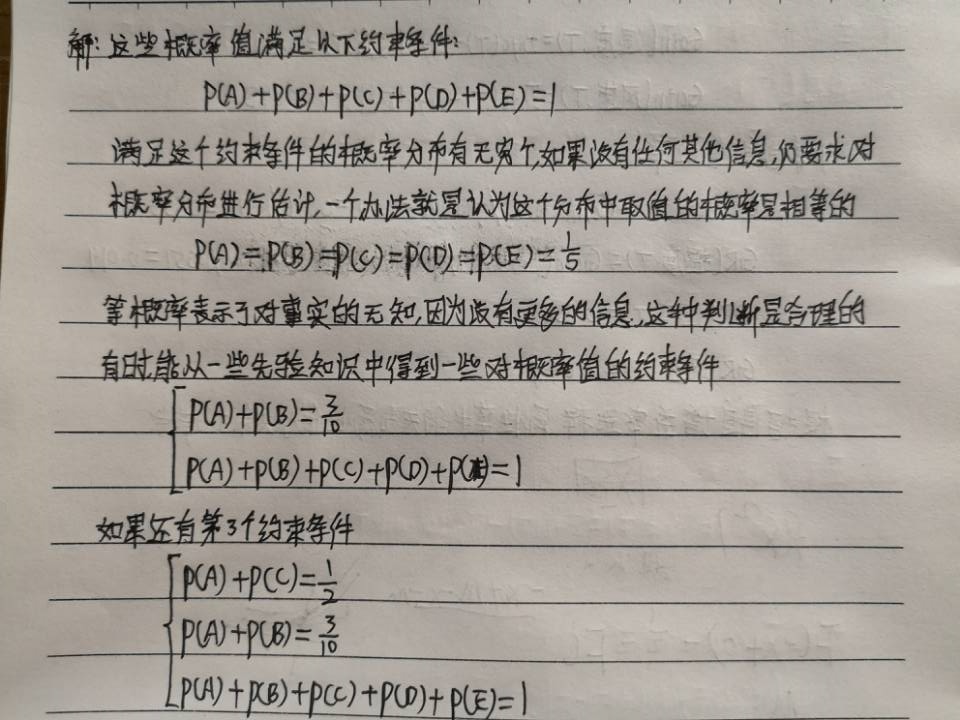 解:这些概率值满足以下约束条件:
P(A)+P(B)+P(C)+P(D)+P(E)=1
满足这个约束条件的概率分布有无穷个,如果没有任何其他信息,仍要求对
概率分布进行估计,一个办法就是认为这个分布中取值的概率是相等的
P(A)=P(B)=P(C)=P(D)=P(E)=1/5
等概率表示了对事实的无知,因为没有更多的信息,这种判断是合理的
有时,能从一些先验知识中得到一些对概率值的约束条件
P(A)+P(B)=3/10
P(A)+P(B)+P(C)+P(D)+P(E)=1
如果还有第3个约束条件
P(A)+P(C)=1/2
P(A)+P(B)=3/10
P(A)+P(B)+P(C)+P(D)+P(E)=1